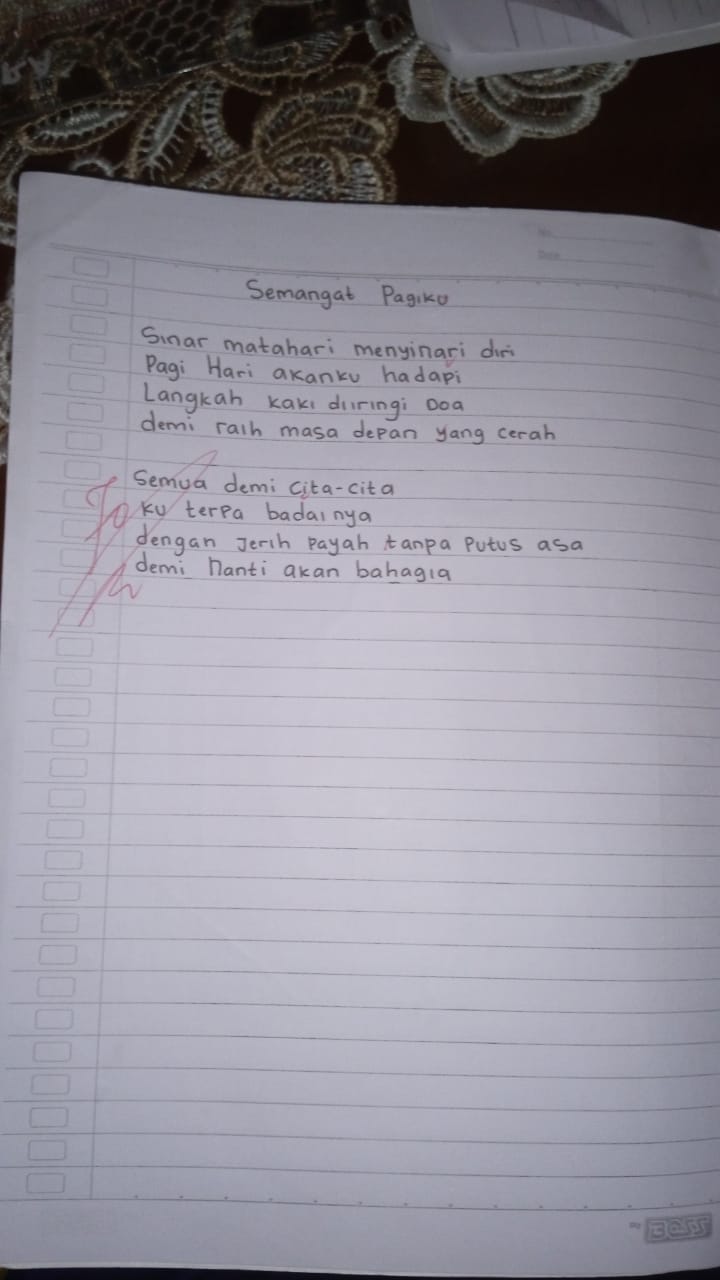 Semangat Pagiku
Sinar matahari menyinari diri
Pagi Hari akanku hadapi
Langkah kaki diiringi Doa
demi raih masa depan yang cerah
Semua demi cita-cita
ku terpa badai nya
dengan Jerih payah tanpa putus asa
demi nanti akan bahagia
No.
Date